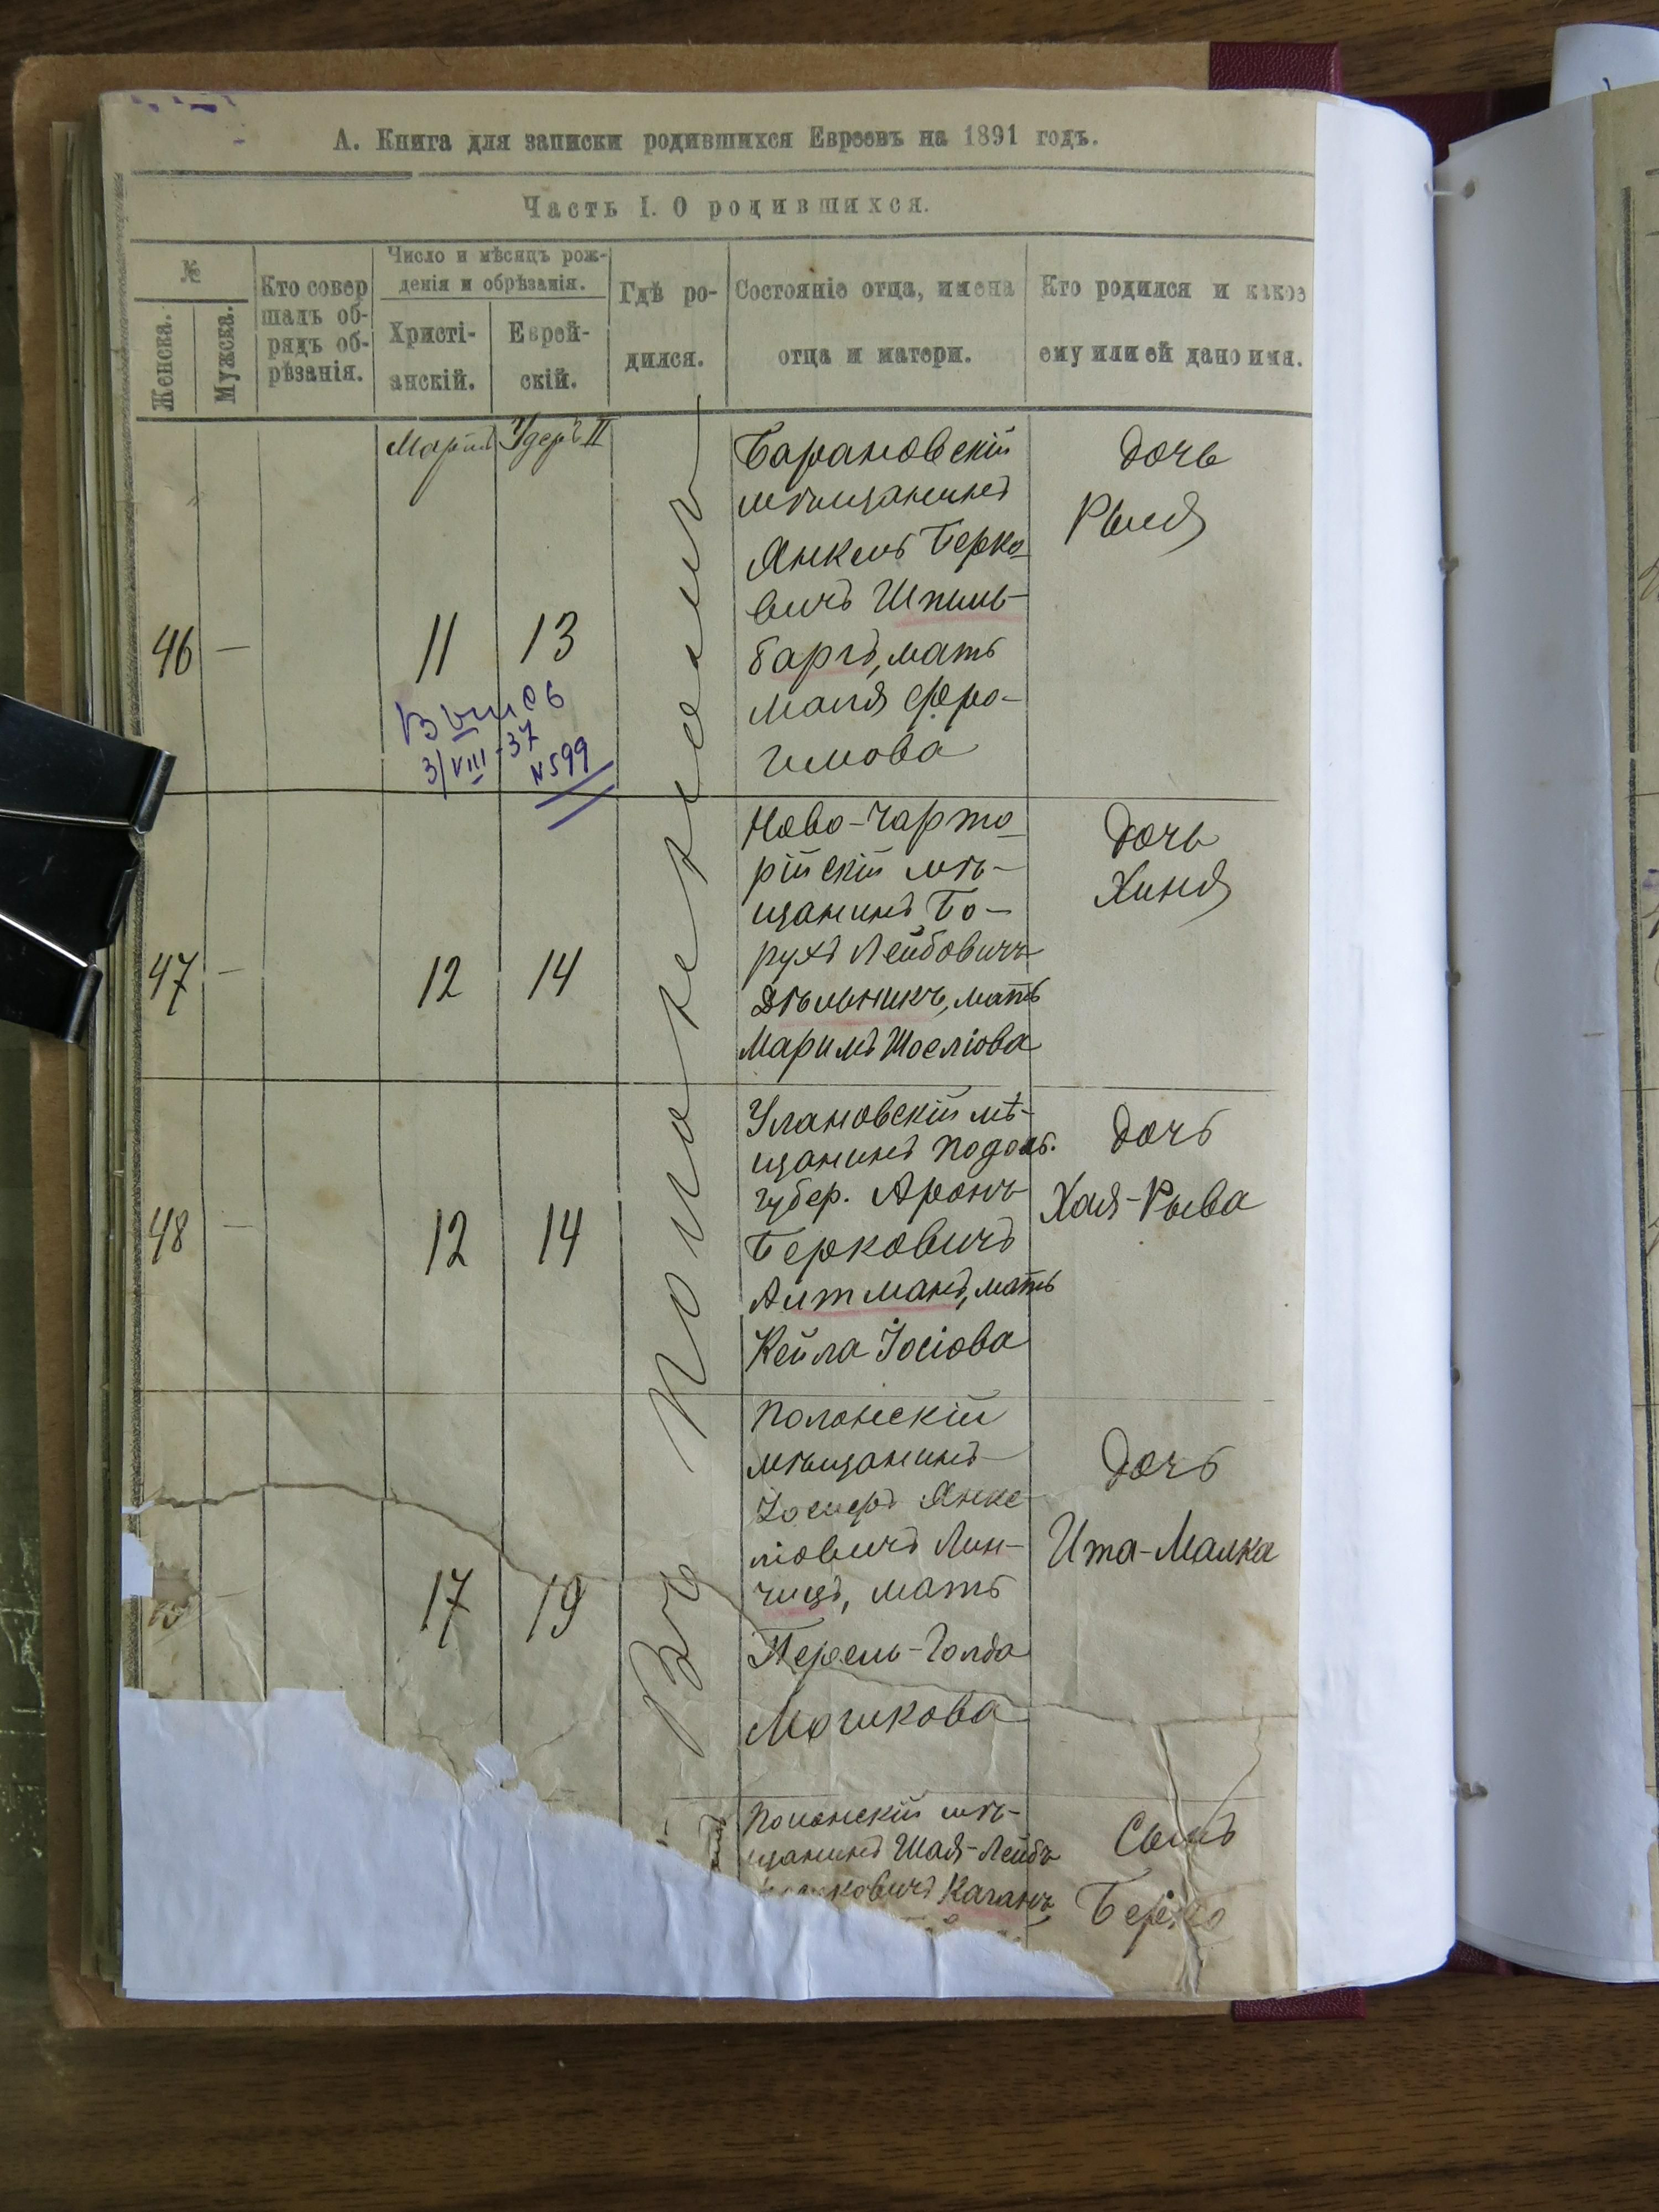 А. Книга для записки родившихся Евреевъ на 1891 годъ.
Часть I. О родившихся.
№
Женска.
Мужска.
Кто совер
шалъ об-
рядъ об-
рѣзанія.
Число и мѣсяцъ рож-
денія и обрѣзанія.
Христі-
анскій.
Еврей-
скій.
Гдѣ ро-
дился.
Состояніе отца, имена
отца и матери.
Кто родился и какое
ему или ей дано имя.
Мартъ
Удеръ II
46
—
11
13
Барановскій
мѣщанинъ
Янкель Берко-
вичъ Шпиль-
баргъ, мать
Маля Фро-
имова
дочь
Рыся
3/VIII-37
N599
47
—
12
14
Ново-Чарто-
рійскій мѣ-
щанинъ Бо-
рухъ Лейбовичъ
Дѣльникъ, мать
Маримъ Іосліова
дочь
Хиня
48
—
12
14
Улановскій мѣ-
щанинъ Подол.
губер. Аронъ
Берковичъ
Алтманъ, мать
Кейла Іосіова
дочь
Хая-Рыва
17
19
Полонскій
мѣщанинъ
Іосифъ Янке-
ліовичъ Лин-
чицъ, мать
Перель-Голда
Мошкова
дочь
Ита-Малка
Въ Полонномъ
Полонскій мѣ-
щанинъ Шая-Лейбъ
ковичъ Каганъ,
Сынъ
Берко